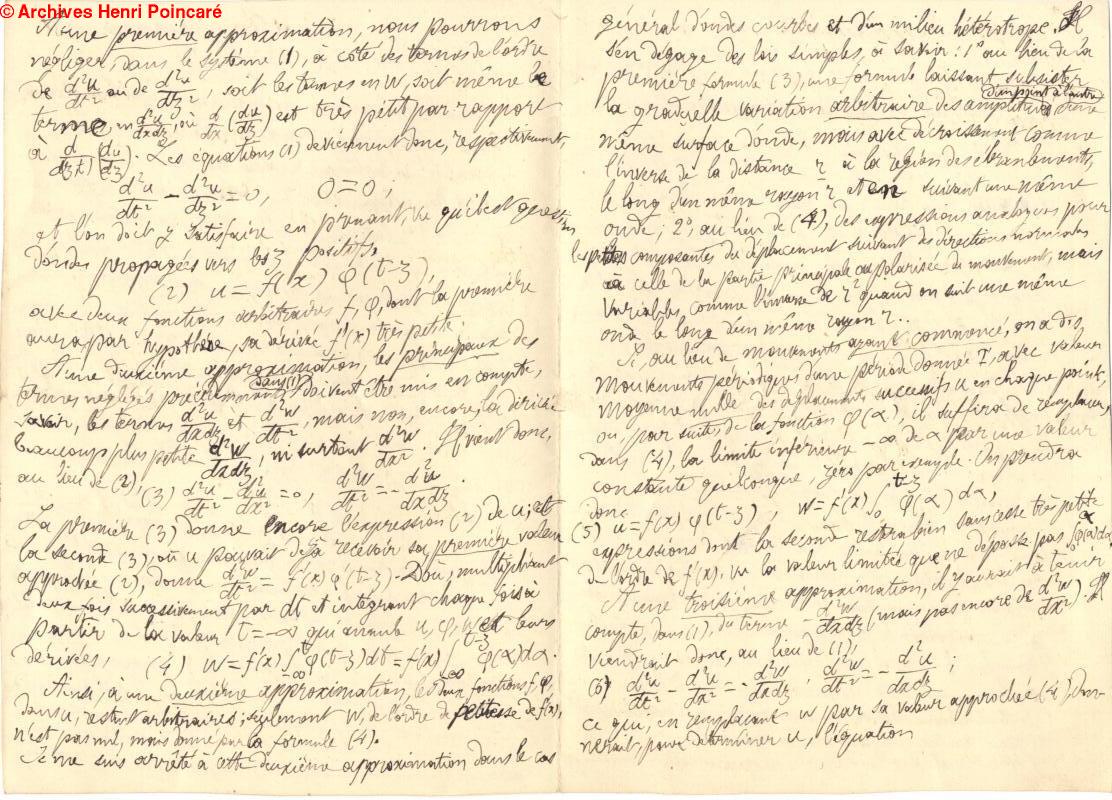 © Archives Henri Poincaré
A une première approximation, nous pourrons
négliger, dans le système (1), à côté des termes de l'ordre
de d²u/dt² ou de d²u/dz², soit les termes en w, soit même le
terme en d²u/dxdz, où d/dx (du/dz) est très petit par rapport
à d/d(z,t) (du/dz). Les équations (1) deviennent donc, respectivement,
d²u/dt² - d²u/dz² = 0, 0 = 0,
et l'on doit y satisfaire en prenant, vu qu'il est question
d'ondes propagées vers les z positifs,
(2) u = f(x) φ(t-z),
avec deux fonctions arbitraires f, φ, dont la première
aura par hypothèse, sa dérivée f'(x) très petite.
A une deuxième approximation, les principaux des
termes négligés précédemment dans (1) doivent être mis en compte,
savoir, les termes d²u/dxdz et d²w/dt², mais non, encore, la dérivée
beaucoup plus petite d²w/dxdz, ni surtout d²w/dx². Il vient donc,
au lieu de (2),
(3) d²u/dt² - d²u/dx² = 0, d²w/dt² = - d²u/dxdz.
La première (3) donne encore l'expression (2) de u; et
la seconde (3), où u pouvait déjà recevoir sa première valeur
approchée (2), donne d²w/dt² = f'(x) φ'(t-z). D'où, multipliant
deux fois successivement par dt et intégrant chaque fois à
partir de la valeur t = -∞ qui annule u, φ, w et leurs
dérivées,
(4) w = f'(x) ∫_{-∞}^{t} φ(t-z) dt = f'(x) ∫_{-∞}^{t-z} φ(α) dα.
Ainsi, à une deuxième approximation, les deux fonctions f, φ,
dans u, restent arbitraires; seulement w, de l'ordre de petitesse de f'(x),
n'est pas nul, mais donné par la formule (4).
Je me suis arrêté à cette deuxième approximation dans le cas
général d'ondes courbes et d'un milieu hétérotrope. Il
s'en dégage des lois simples, à savoir : 1° au lieu de la
première formule (3), une formule laissant subsister
la graduelle variation arbitraire des amplitudes d'un point à l'autre d'une
même surface d'onde, mais avec décroissement comme
l'inverse de la distance r à la région des ébranlements,
le long d'un même rayon r et en suivant une même
onde; 2°, au lieu de (4), des expressions analogues pour
les petites composantes du déplacement suivant des directions normales
à celle de la partie principale ou polarisée du mouvement, mais
variables, comme l'inverse de r² quand on suit une même
onde le long d'un même rayon r..
Si, au lieu de mouvements ayant commencé, on a des
mouvements périodiques d'une période donnée T, avec valeur
moyenne nulle des déplacements successifs u en chaque point,
ou, par suite, de la fonction φ(α), il suffira de remplacer,
dans (4), la limite inférieure -∞ de α par une valeur
constante quelconque, zéro par exemple. On prendra
donc
(5) u = f(x) φ(t-z), w = f'(x) ∫_0^{t-z} φ(α) dα,
expressions dont la seconde restera bien sans cesse très petite
de l'ordre de f'(x), vu la valeur limitée que ne dépasse pas ∫_0^α φ(α) dα.
A une troisième approximation, il y aurait à tenir
compte, dans (1), du terme - d²w/dxdz (mais pas encore de d²w/dx²). Il
viendrait donc, au lieu de (1),
(6) d²u/dt² - d²u/dx² = - d²w/dxdz, d²w/dt² = - d²u/dxdz;
ce qui, en remplaçant w par sa valeur approchée (4) don-
nerait, pour déterminer u, l'équation